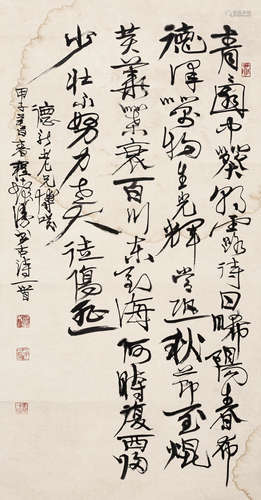 青〻園中葵朝露待日晞陽春布
德澤萬物生光輝常恐秋節至焜
黄華葉衰百川東到海何時復西歸
少壯不努力老大徒傷悲
德新老兄博咲
甲子春書古詩一首